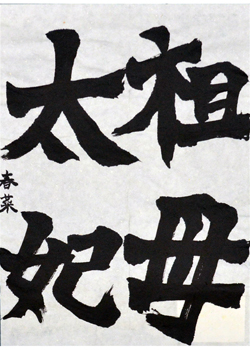 祖母
太妃
春菜